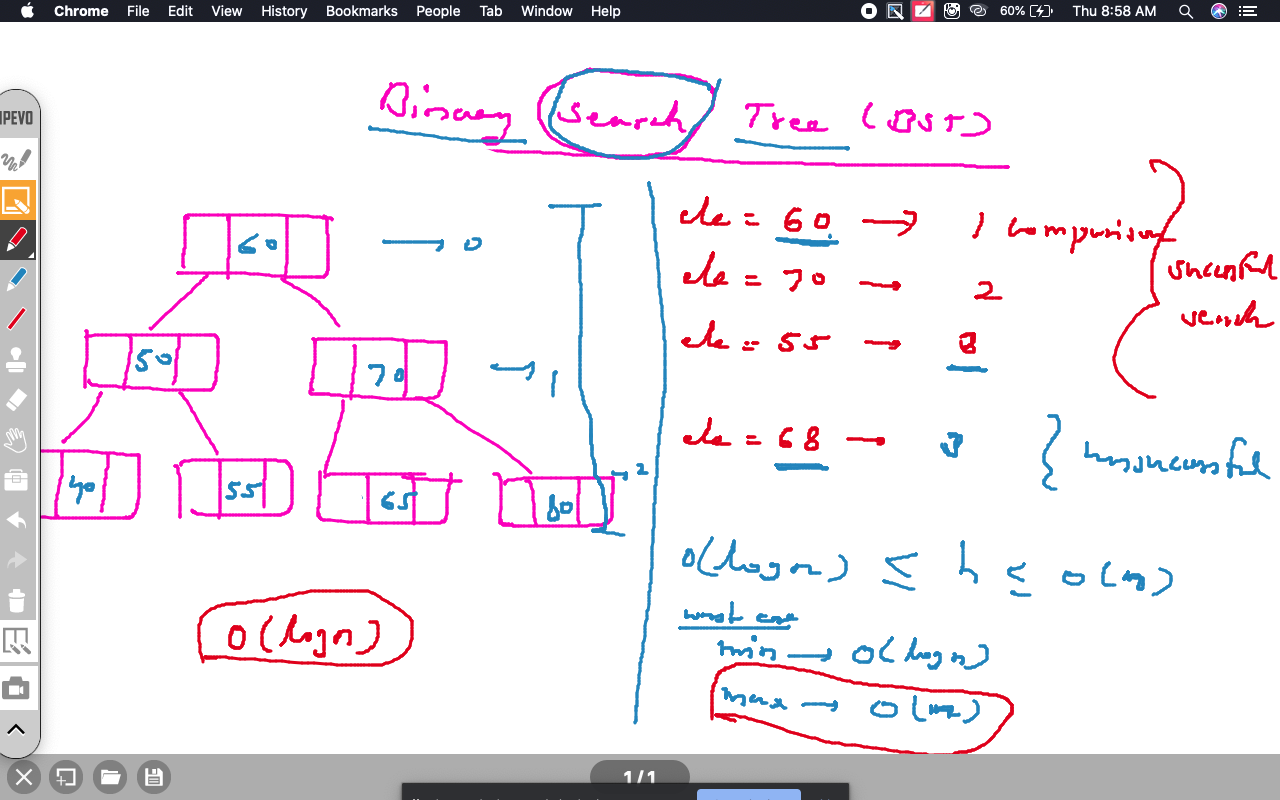 Chrome File Edit View History Bookmarks People Tab Window Help 60% Thu 8:58 AM
IPEVO
Binary Search Tree (BST)
60 → 0
50 70 → 1
40 55 65 80 → 2
O(logn)
ele = 60 → 1 comparison
ele = 70 → 2
ele = 55 → 3
successful
search
ele = 68 → 3 unsuccessful
O(logn) ≤ h ≤ O(n)
worst case
min → O(logn)
max → O(n)
1/1